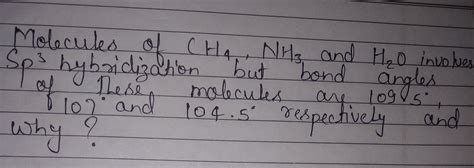 Molecules of CH4, NH3 and H2O involves
Sp3 hybridization but bond angles
of these molecules are 109.5°,
107° and 104.5° respectively and
why?